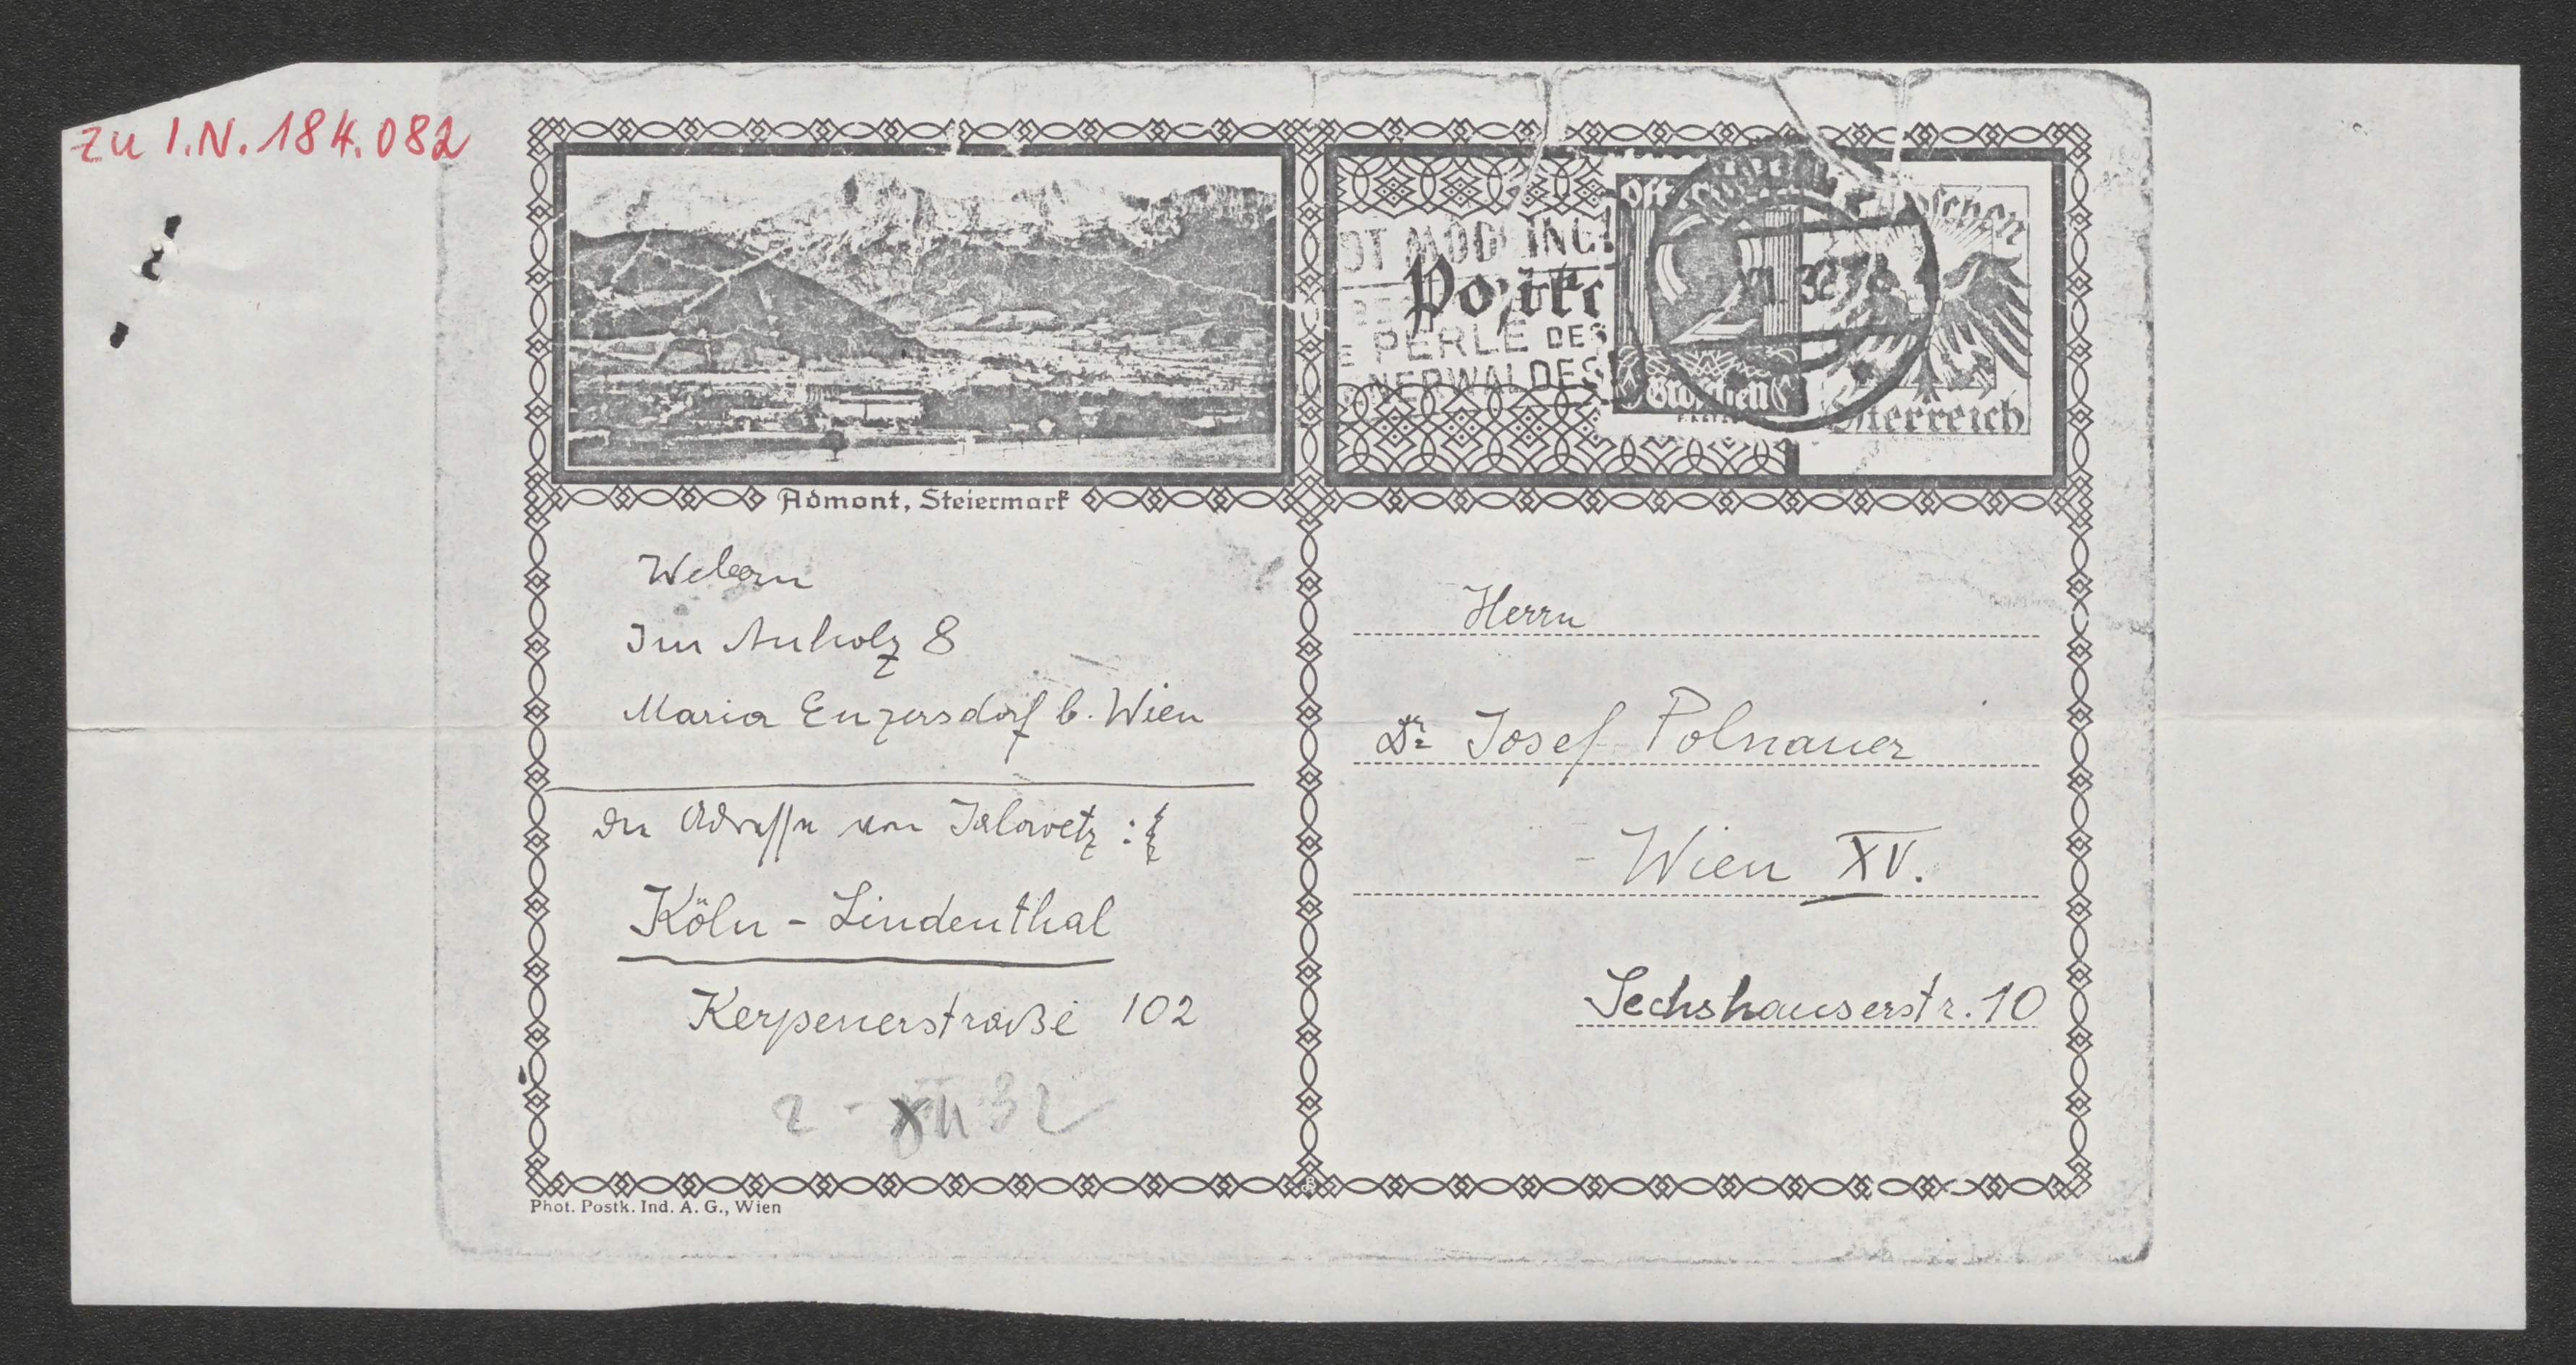 zu I.N. 184.082
DT MÖDLING!
Postk
PERLE DES
NERWALDES
2
Groschen
Österreich
Admont, Steiermark
Webern
Im Auholz 8
Maria Enzersdorf b. Wien
die Adresse von Jalowetz :
Köln - Lindenthal
Kerpenerstraße 102
2 - XII 32
Herrn
Dr Josef Polnauer
- Wien XV.
Sechshauserstr. 10
Phot. Postk. Ind. A. G., Wien